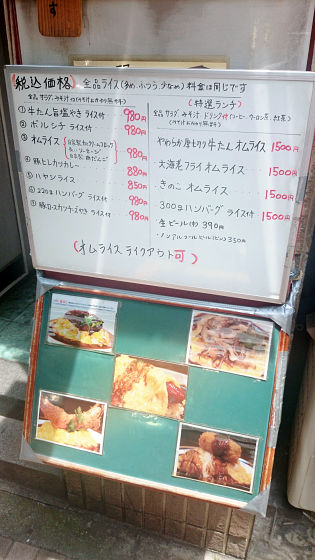 す
(税込価格) 全品ライス(多め、ふつう、少なめ)料金は同じです
全品 サラダ、みそ汁付
① 牛たん旨塩やき ライス付 980円
② ボルシチ ライス付 980円
③ オムライス 980円
880円
⑤ ハヤシライス 850円
⑥ 220g ハンバーグ ライス付 980円
ライス付 980円
(特選ランチ)
全品 サラダ、みそ汁、ドリンク付(コーヒー、ウーロン茶、紅茶)
やわらか厚切り牛たんオムライス 1500円
大海老フライオムライス 1500円
きのこオムライス 1500円
300g ハンバーグ ライス付 1500円
・生ビール(中) 390円
・ノンアルコールビール(ビン) 350円
(オムライス テイクアウト可)